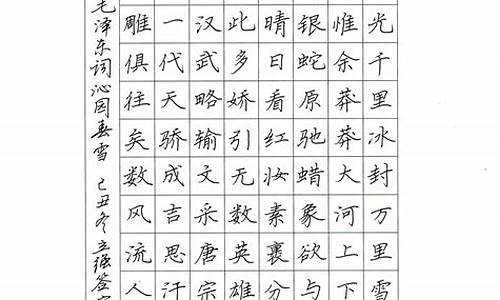 光千里冰封万里雪
惟余莽莽大河上下
银蛇原驰蜡象欲与
晴日看红妆素裹分
此多娇引无数英雄
汉武略输文采唐宗
一代天骄成吉思汗
雕俱往矣数风流人
毛泽东词沁园春雪 己丑冬立强